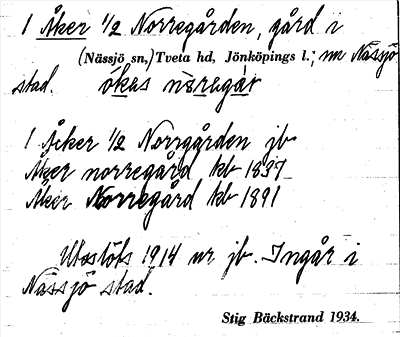 1 Åker 1/2 Norregården, gård i
(Nässjö sn,) Tveta hd, Jönköpings l.; nu Nässjö
stad. ökas nöregår
1 Åker 1/2 Norrgården jb
Åker norregård kb 1837
Åker Norregård kb 1891
Utslöts 1914 ur jb. Ingår i
Nässjö stad.
Stig Bäckstrand 1934.